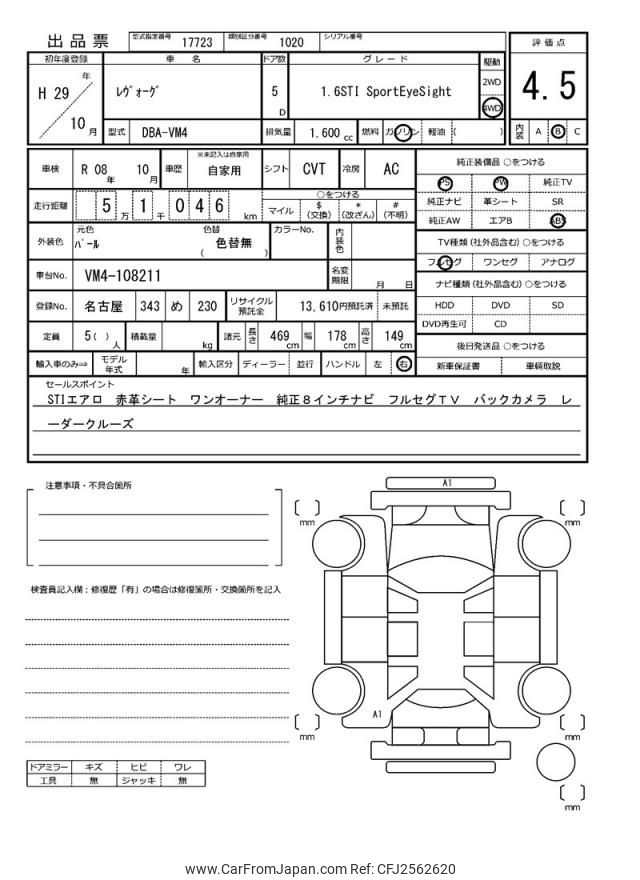 出品票 型式指定番号 17723 類別区分番号 1020 シリアル番号
初年度登録 車名 ドア数 グレード 駆動 評価点
H 29 年 10 月 ﾚｳﾞｫｰｸﾞ 5 D 1.6STI SportEyeSight 2WD 4WD 4.5
型式 DBA-VM4 排気量 1.600 cc 燃料 ガソリン 軽油 ( ) 内装 A B C
車検 R 08 年 10 月 車歴 ※未記入は自家用 自家用 シフト CVT 冷房 AC 純正装備品 ○をつける
PS PW 純正TV
走行距離 5 万 1 千 0 4 6 km ○をつける マイル $ (交換) * (改ざん) # (不明) 純正ナビ 革シート SR
純正AW エアB ABS
外装色 元色 ﾊﾟｰﾙ 色替 色替無 ( ) カラーNo. 内装色 TV種類 (社外品含む) ○をつける
フルセグ ワンセグ アナログ
車台No. VM4-108211 名変期限 月 日 ナビ種類 (社外品含む) ○をつける
登録No. 名古屋 343 め 230 リサイクル預託金 13,610円預託済 未預託 HDD DVD SD
DVD再生可 CD
定員 5( ) 人 積載量 kg 諸元 長さ 469 cm 幅 178 cm 高さ 149 cm 後日発送品 ○をつける
輸入車のみ⇒ モデル年式 年 輸入区分 ディーラー 並行 ハンドル 左 右 新車保証書 車輌取説
セールスポイント
STIエアロ 赤革シート ワンオーナー 純正８インチナビ フルセグＴＶ バックカメラ レ
ーダークルーズ
注意事項・不具合箇所
A1
mm mm
検査員記入欄：修復歴「有」の場合は修復箇所・交換箇所を記入
A1
mm mm
ドアミラー キズ ヒビ ワレ
工具 無 ジャッキ 無
mm
www.CarFromJapan.com Ref: CFJ2562620